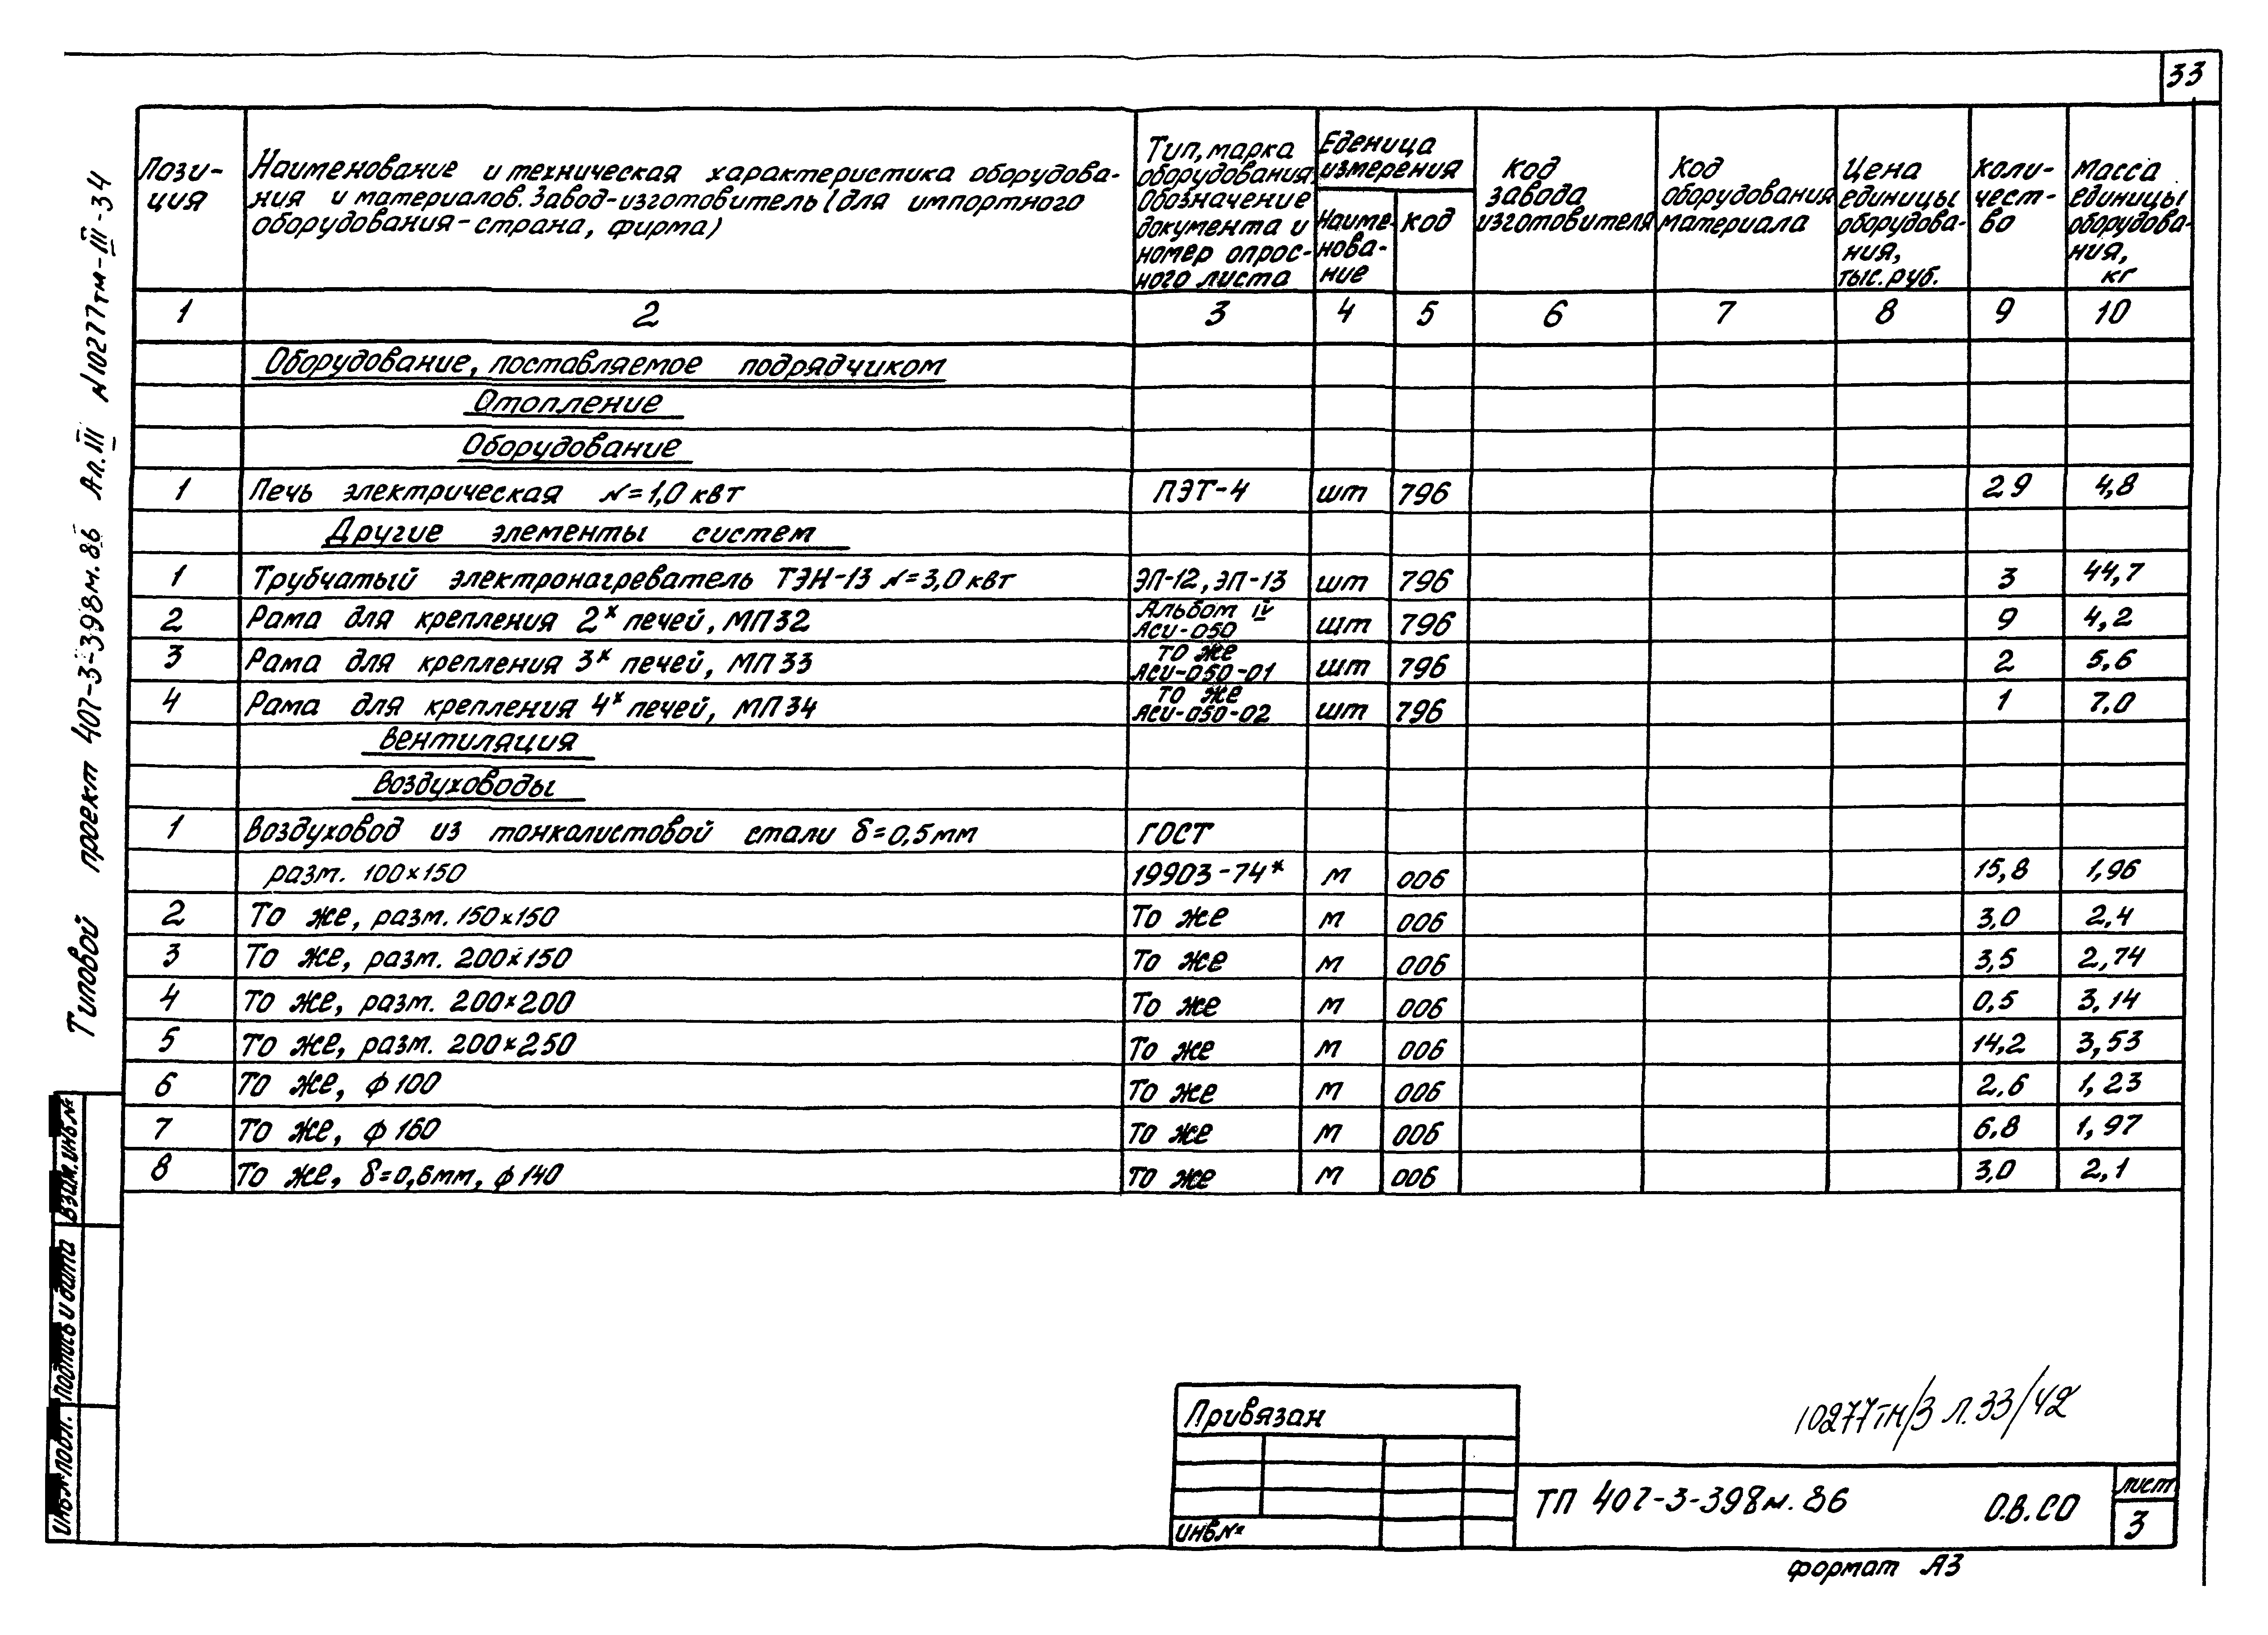 33
Пози-
ция
Наименование и техническая характеристика оборудова-
ния и материалов. Завод-изготовитель (для импортного
оборудования-страна, фирма)
Тип, марка
оборудования.
Обозначение
документа и
номер опрос-
ного листа
Еденица
измерения
Наиме-
нова-
ние
код
код
завода
изготовителя
код
оборудования
материала
Цена
единицы
оборудова-
ния,
тыс. руб.
коли-
чест-
во
Масса
единицы
оборудова-
ния,
кг
1 2 3 4 5 6 7 8 9 10
Оборудование, поставляемое подрядчиком
Отопление
Оборудование
1 Печь электрическая N=1,0 квт ПЭТ-4 шт 796 29 4,8
Другие элементы систем
1 Трубчатый электронагреватель ТЭН-13 N=3,0 квт ЭП-12, ЭП-13 шт 796 3 44,7
2 Рама для крепления 2х печей, МП32 Альбом IV АСИ-050 шт 796 9 4,2
3 Рама для крепления 3х печей, МП33 то же АСИ-050-01 шт 796 2 5,6
4 Рама для крепления 4х печей, МП34 то же АСИ-050-02 шт 796 1 7.0
вентиляция
воздуховоды
1 воздуховод из тонколистовой стали δ=0,5мм ГОСТ
разм. 100×150 19903-74* м 006 15,8 1,96
2 То же, разм. 150×150 То же м 006 3,0 2,4
3 То же, разм. 200×150 То же м 006 3,5 2,74
4 То же, разм. 200×200 То же м 006 0,5 3,14
5 То же, разм. 200×250 То же м 006 14,2 3,53
6 То же, ф 100 То же м 006 2.6 1,23
7 То же, ф 160 То же м 006 6.8 1,97
8 То же, δ=0,6мм, ф 140 То же м 006 3,0 2,1
Типовой проект 407-3-398м.86 Ал. III N10277тм-III-34
взам. инв №
подпись и дата
инв. № подл.
Привязан
инв №
10277тм/3 л. 33/42
ТП 407-3-398м. 86
О.В. СО
лист
3
формат А3